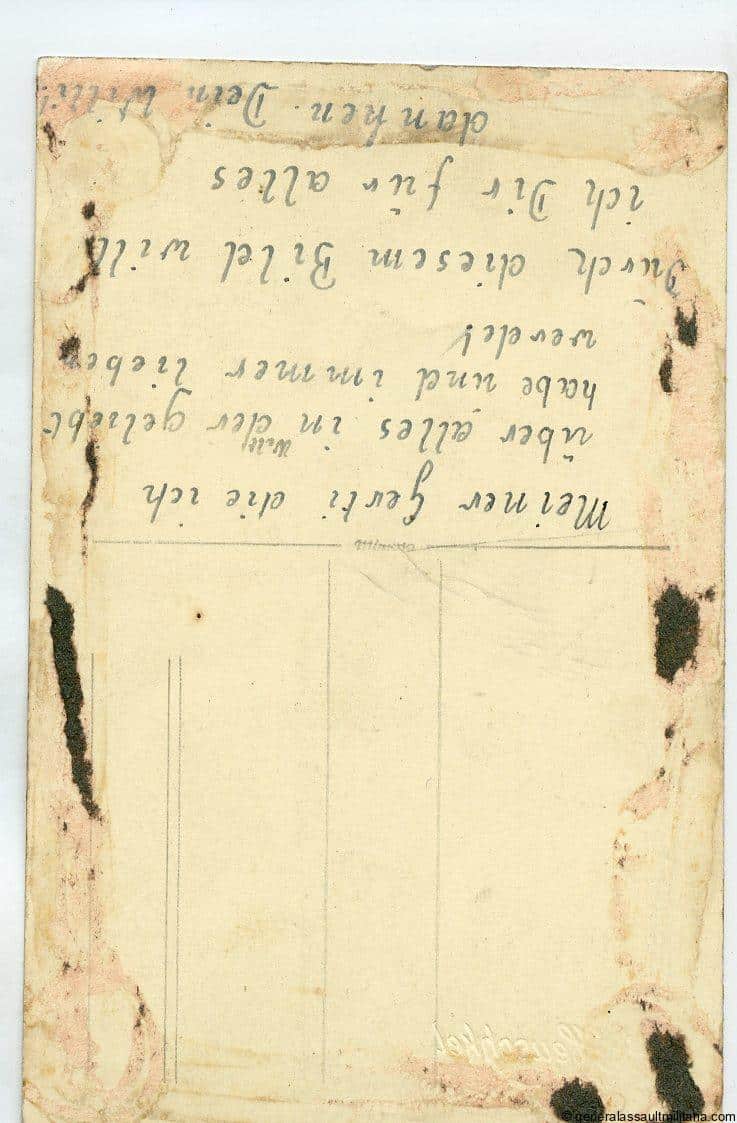 Meiner Gerti die ich
Welt
über alles in der geliebt
habe und immer lieben
werde!
Durch diesem Bild will
ich Dir für alles
danken. Dein Willi!
© generalassaultmilitaria.com